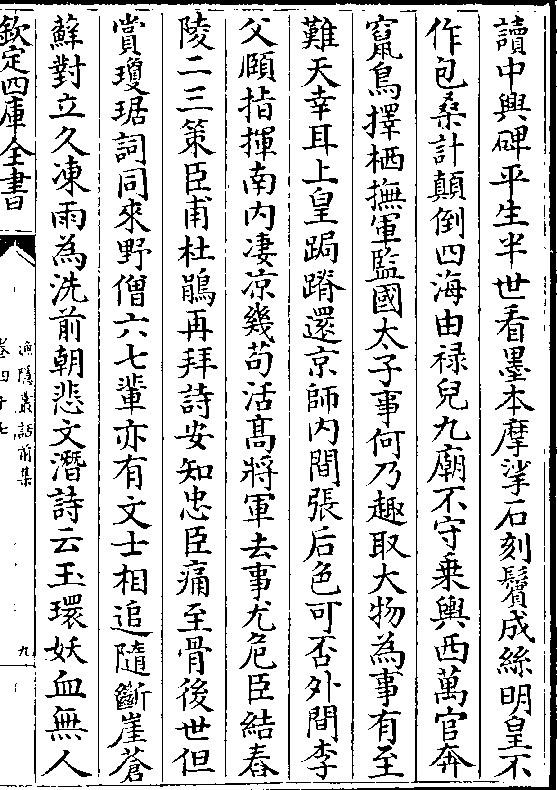 讀中興碑平生半世看墨本摩挲石刻鬢成絲明皇不
作包桑計顛倒四海由禄兒九廟不守乗輿西萬官奔
竄鳥擇栖撫軍監國太子事何乃趣取大物為事有至
難天幸耳上皇跼蹐還京師内間張后色可否外間李
父頤指揮南内凄凉幾茍活髙將軍去事尤危臣結舂
陵二三策臣甫杜鵑再拜詩安知忠臣痛至骨後世但
賞瓊琚詞同來野僧六七輩亦有文士相追隨斷崖蒼
蘚對立久凍雨為洗前朝悲文潛詩云玉環妖血無人
欽定四庫全書
漁隱叢話前集
卷四十七
九